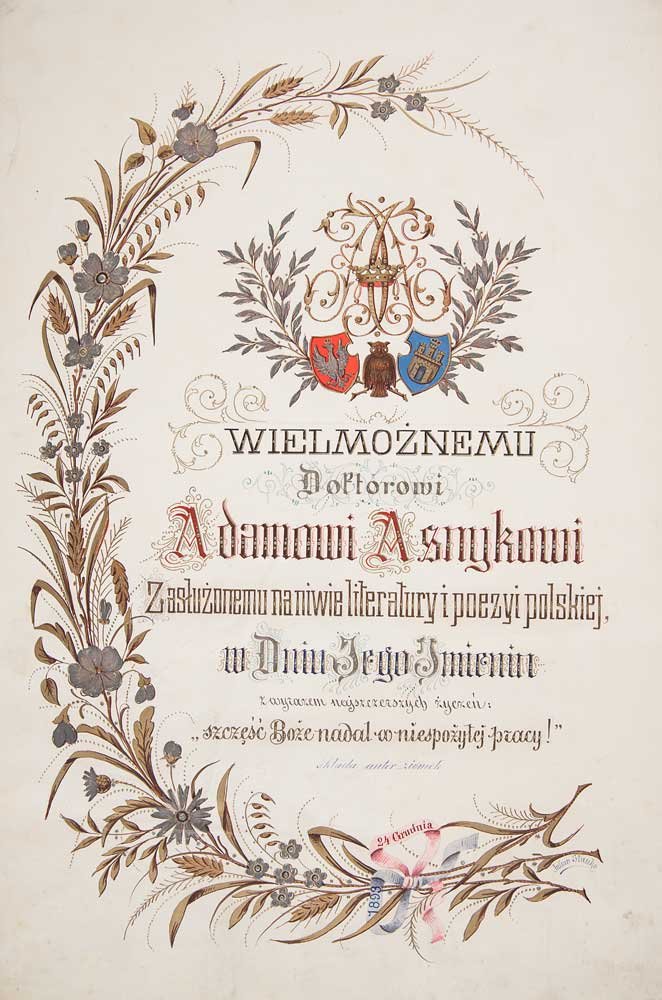 WIELMOŻNEMU
Doktorowi
Adamowi Asnykowi
Zasłużonemu na niwie literatury i poezyi polskiej,
w Dniu Jego Imienin
z wyrazem najszczerszych życzeń:
„szczęść Boże nadal w niespożytej pracy!”
składa autor ziomek
24 Grudnia
1893